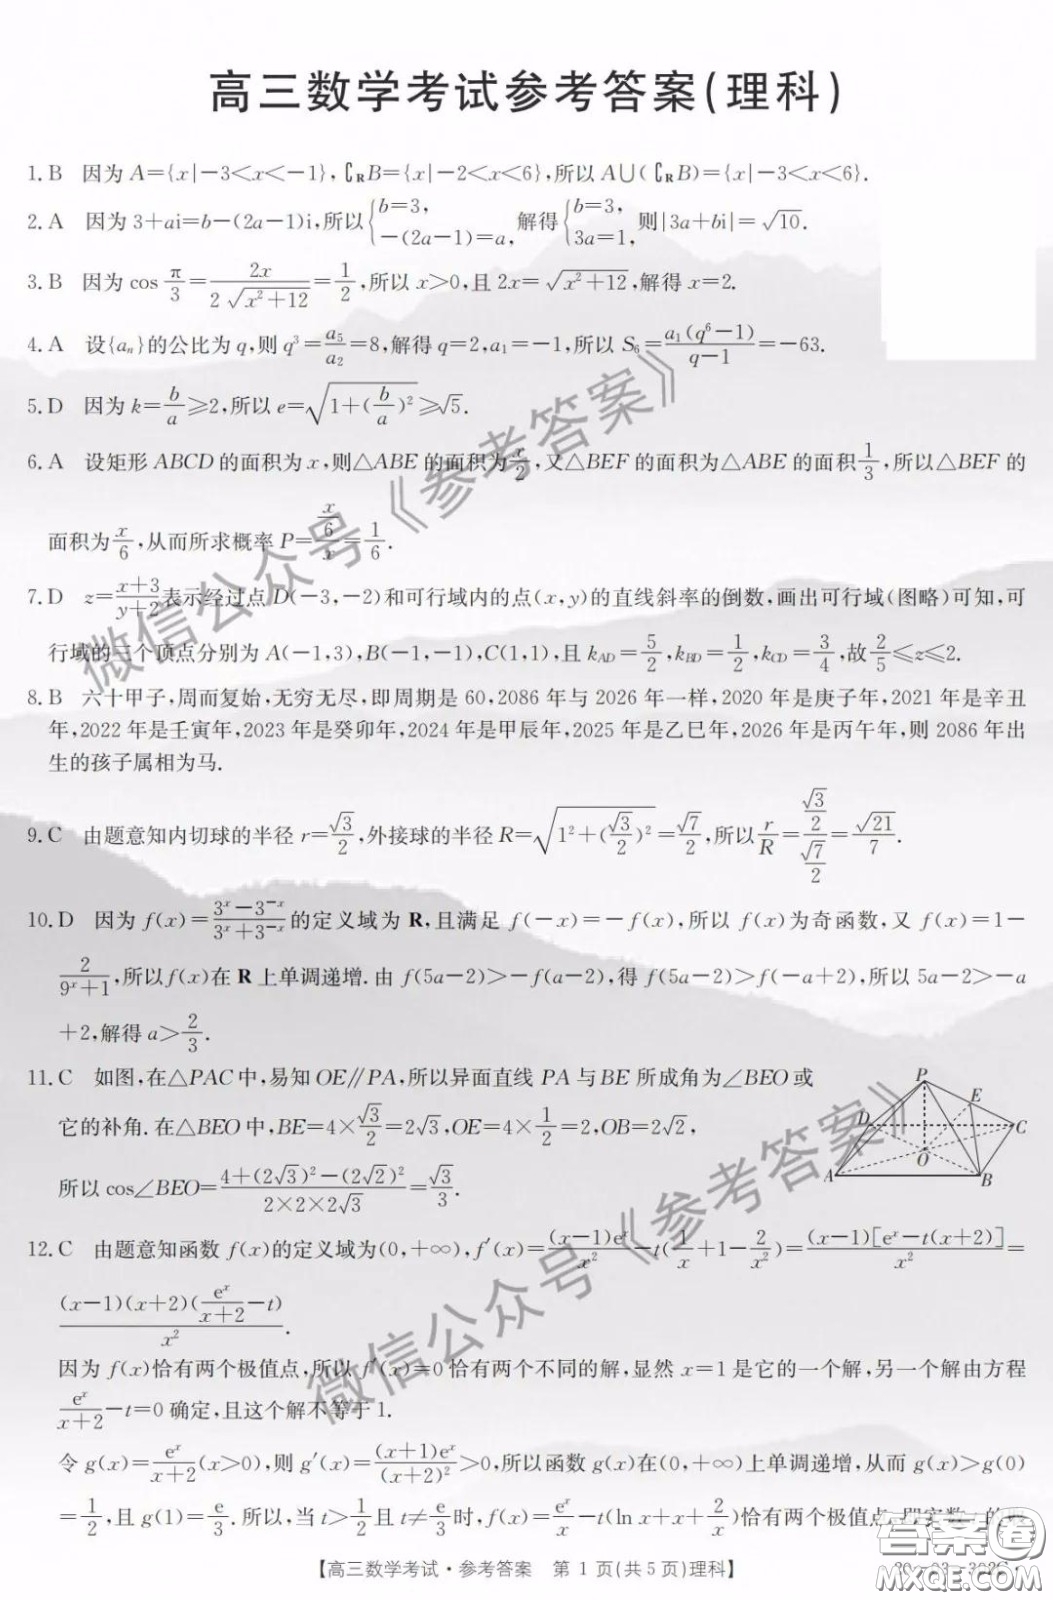 高三数学考试参考答案(理科)
1. B 因为 A={x|-3<x<-1}, ∁RB={x|-2<x<6}, 所以 A∪(∁RB)={x|-3<x<6}.
2. A 因为 3+ai=b-(2a-1)i, 所以 {b=3, -(2a-1)=a, 解得 {b=3, 3a=1, 则|3a+bi|=√10.
3. B 因为 cos π/3=2x/(2√(x²+12))=1/2, 所以 x>0, 且 2x=√(x²+12), 解得 x=2.
4. A 设{aₙ}的公比为 q, 则 q³=a₅/a₂=8, 解得 q=2, a₁=-1, 所以 S₆=a₁(q⁶-1)/(q-1)=-63.
5. D 因为 k=b/a≥2, 所以 e=√(1+(b/a)²)≥√5.
6. A 设矩形 ABCD 的面积为 x, 则△ABE 的面积为 x/2, 又△BEF 的面积为△ABE 的面积 1/3, 所以△BEF 的
面积为 x/6, 从而所求概率 P=(x/6)/x=1/6.
7. D z=(x+3)/(y+2)表示经过点 D(-3,-2)和可行域内的点(x,y)的直线斜率的倒数, 画出可行域(图略)可知, 可
行域的三个顶点分别为 A(-1,3), B(-1,-1), C(1,1), 且 kAD=5/2, kBD=1/2, kCD=3/4, 故 2/5≤z≤2.
8. B 六十甲子, 周而复始, 无穷无尽, 即周期是 60, 2086 年与 2026 年一样, 2020 年是庚子年, 2021 年是辛丑
年, 2022 年是壬寅年, 2023 年是癸卯年, 2024 年是甲辰年, 2025 年是乙巳年, 2026 年是丙午年, 则 2086 年出
生的孩子属相为马.
9. C 由题意知内切球的半径 r=√3/2, 外接球的半径 R=√(1²+(√3/2)²)=√7/2, 所以 r/R=(√3/2)/(√7/2)=√21/7.
10. D 因为 f(x)=(3ˣ-3⁻ˣ)/(3ˣ+3⁻ˣ)的定义域为 R, 且满足 f(-x)=-f(x), 所以 f(x)为奇函数, 又 f(x)=1-
2/(9ˣ+1), 所以f(x)在 R 上单调递增. 由 f(5a-2)>-f(a-2), 得 f(5a-2)>f(-a+2), 所以 5a-2>-a
+2, 解得 a>2/3.
11. C 如图, 在△PAC中, 易知 OE∥PA, 所以异面直线 PA 与 BE 所成角为∠BEO或
它的补角. 在△BEO 中, BE=4×√3/2=2√3, OE=4×1/2=2, OB=2√2,
所以 cos∠BEO=(4+(2√3)²-(2√2)²)/(2×2×2√3)=√3/3.
P
E
D
C
O
A
B
12. C 由题意知函数 f(x)的定义域为(0,+∞), f′(x)=(x-1)eˣ/x²-t(1/x+1-2/x²)=(x-1)[eˣ-t(x+2)]/x²=
(x-1)(x+2)(eˣ/(x+2)-t)/x².
因为 f(x)恰有两个极值点, 所以 f′(x)=0 恰有两个不同的解, 显然 x=1 是它的一个解, 另一个解由方程
eˣ/(x+2)-t=0 确定, 且这个解不等于 1.
令 g(x)=eˣ/(x+2)(x>0), 则 g′(x)=(x+1)eˣ/(x+2)²>0, 所以函数 g(x)在(0,+∞)上单调递增, 从而 g(x)>g(0)
=1/2, 且 g(1)=e/3. 所以, 当 t>1/2 且 t≠e/3 时, f(x)=eˣ/x-t(ln x+x+2/x)恰有两个极值点, 即实数
【高三数学考试·参考答案 第 1 页(共 5 页)理科】
微信公众号《参考答案》
微信公众号《参考答案》
答案圈
MXQE.COM